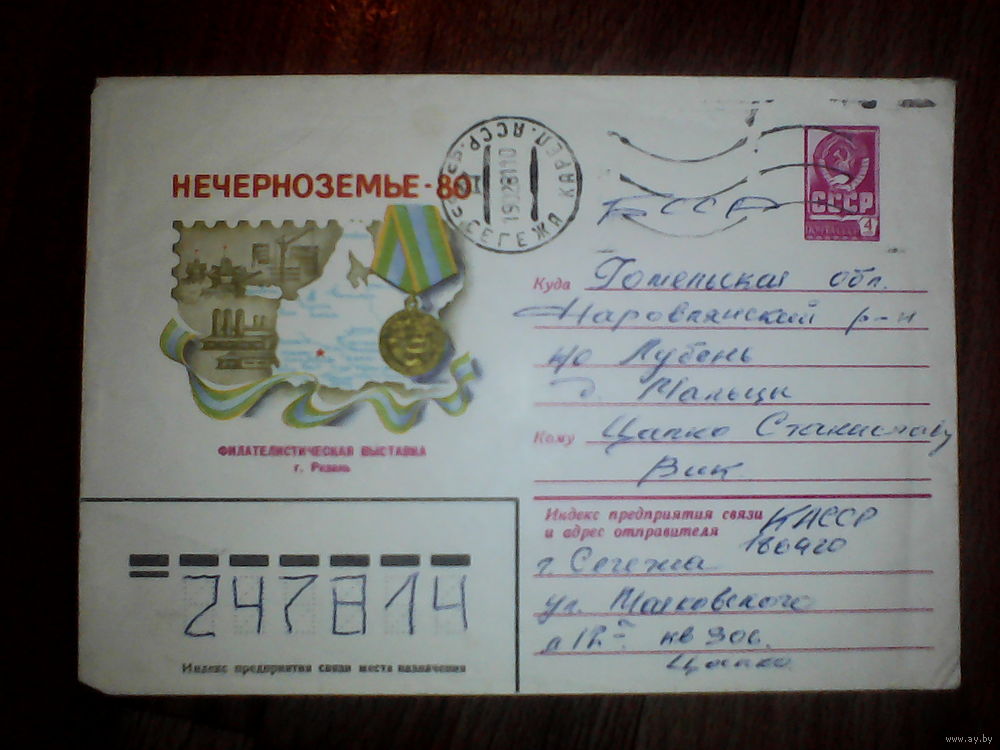 НЕЧЕРНОЗЕМЬЕ-80
ФИЛАТЕЛИСТИЧЕСКАЯ ВЫСТАВКА
г. Рязань
СЕГЕЖА КАРЕЛ. АССР
СССР
ПОЧТА СССР
4
БССР
Куда Гомельская обл.
Наровлянский р-н
п/о Лубень
д. Мальцы
Кому Цапко Станиславу
Вик
Индекс предприятия связи
и адрес отправителя КАССР
186420
г. Сегежа
ул. Маяковского
кв 306.
Цапко
247814
Индекс предприятия связи места назначения
www.ay.by